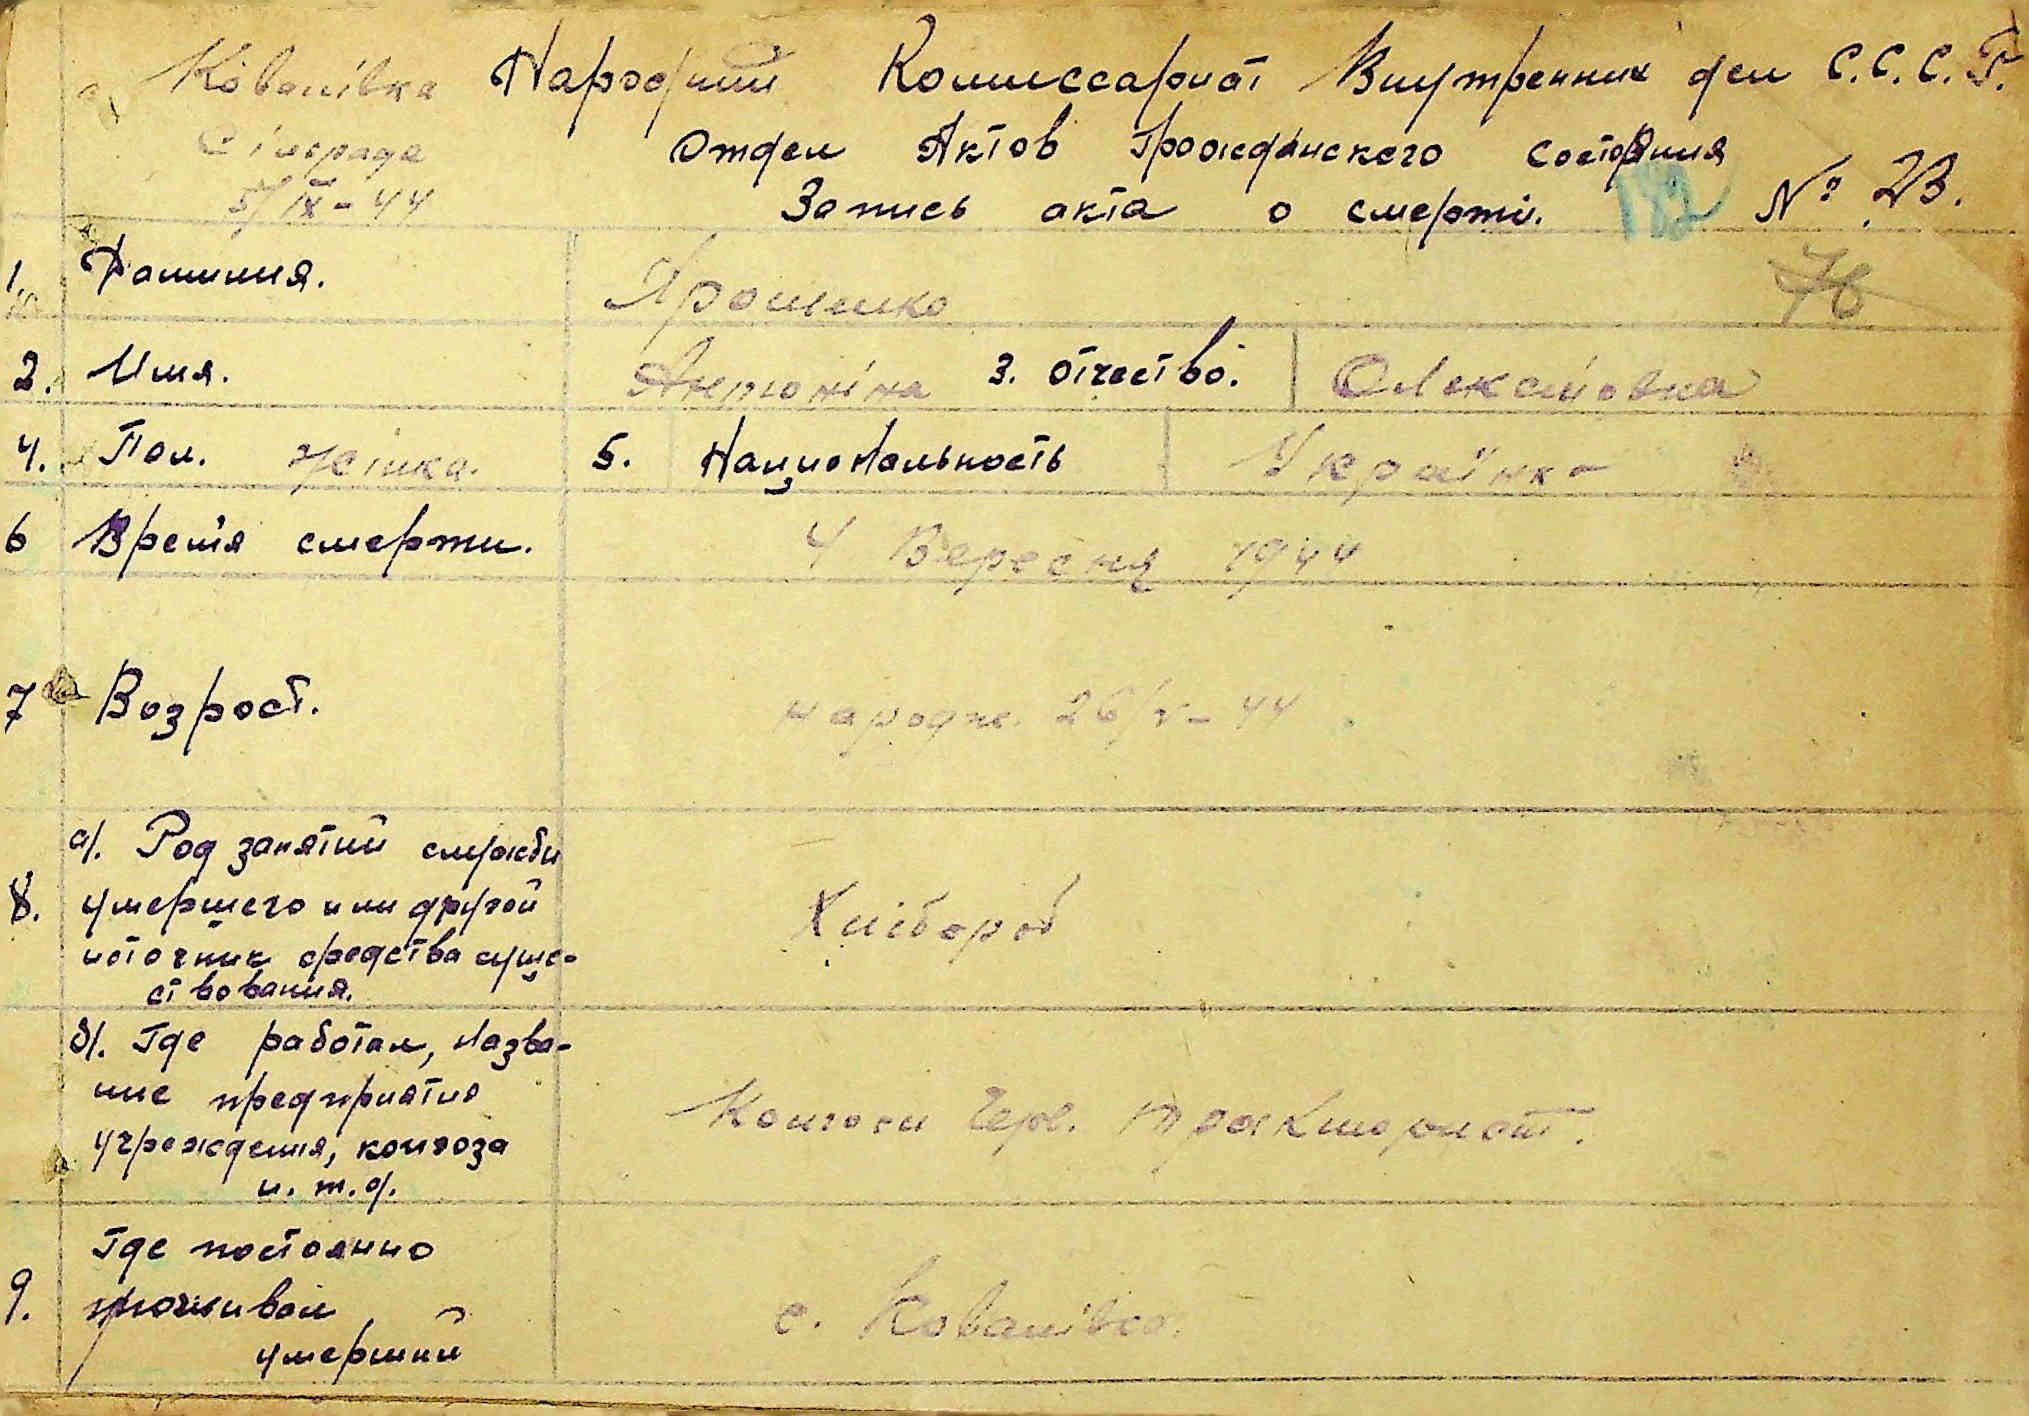 с. Ковалівка Народний Комиссариат Внутренних дел С.С.С.Р.
Сільрада Отдел Актов Гражданского состояния
5/IX-44 Запись акта о смерти. 182 № 23.
1. Фамилия. 76
2. Имя. Антоніна 3. Отчество. Олексіївна
4. Пол. жінка. 5. Национальность Українка
6 Время смерти. 4 Вересня 1944
7 Возраст. народж. 26/V-44
а/. Род занятий службы
8. умершего или другой Хлібороб
источник средства суще-
ствования.
б/. Где работал, назва-
ние предприятия Колгосп Черв. тракторист.
учреждения, колхоза
и.т.д.
Где постоянно
9. проживал с. Ковалівка.
умерший